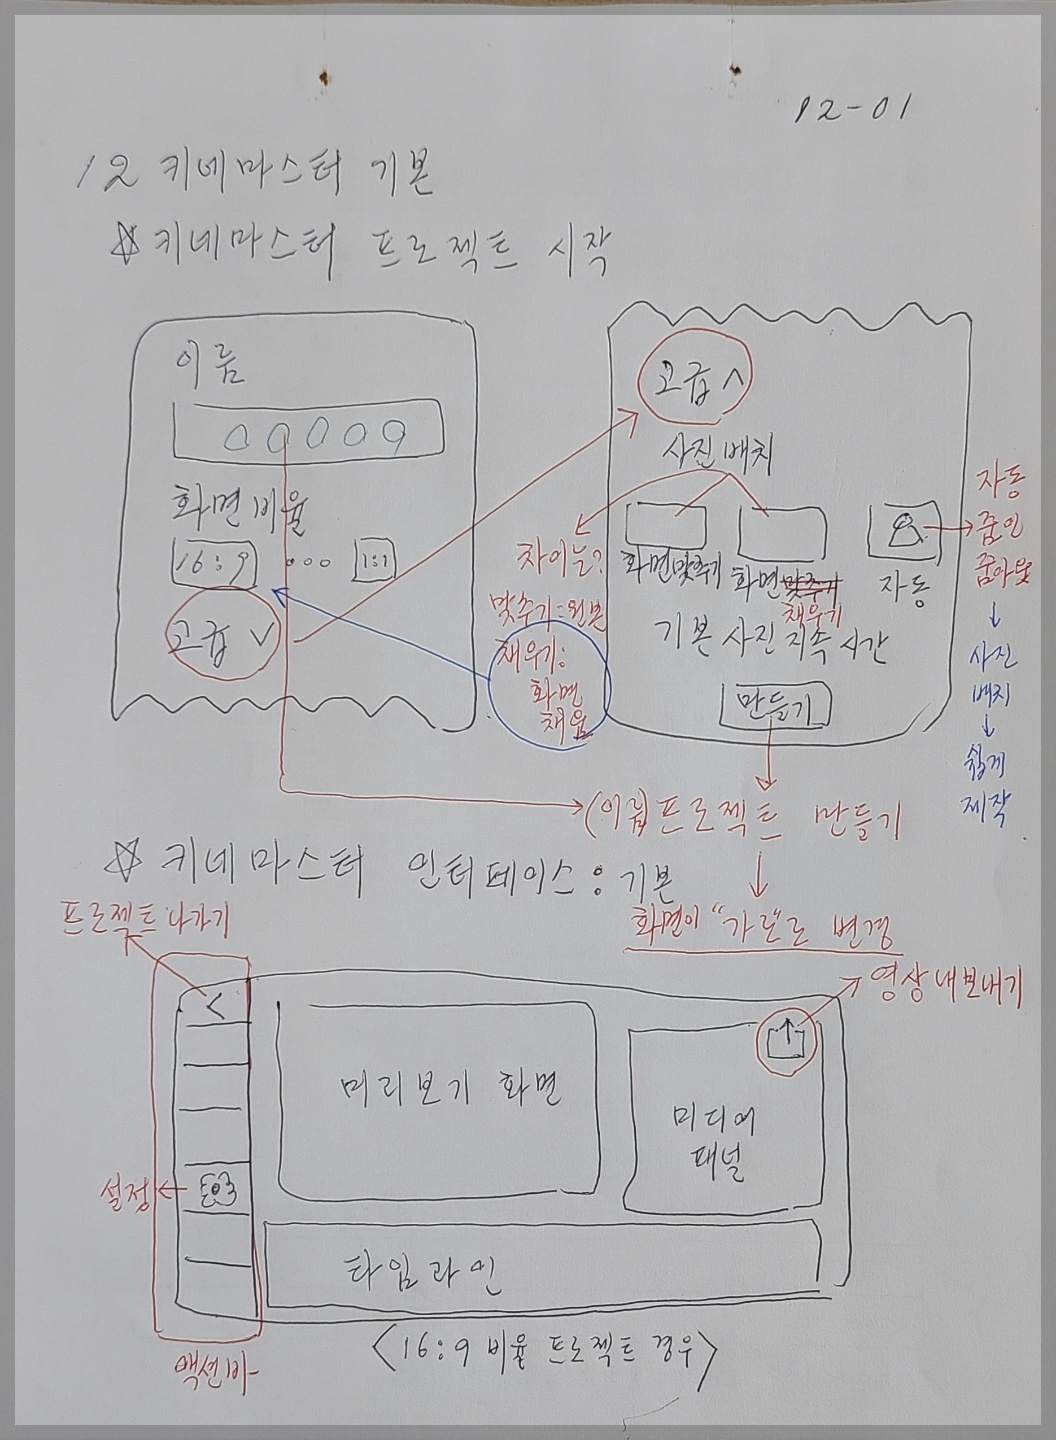 12-01
12 키네마스터 기본
☆ 키네마스터 프로젝트 시작
이름
00009
화면비율
16:9 ooo 1:1
고급 ∨
고급 ∧
사진배치
화면맞추기
화면맞추기
채우기
자동
기본 사진 지속 시간
만들기
차이는?
맞추기=원본
채우기:
화면
채움
자동
줌인
줌아웃
↓
사진
배치
↓
쉽게
제작
(이름)프로젝트 만들기
☆ 키네마스터 인터페이스 : 기본
화면이 "가로"로 변경
프로젝트 나가기
<
영상 내보내기
미리보기 화면
미디어
패널
설정
타임라인
<16:9 비율 프로젝트 경우>
액션바